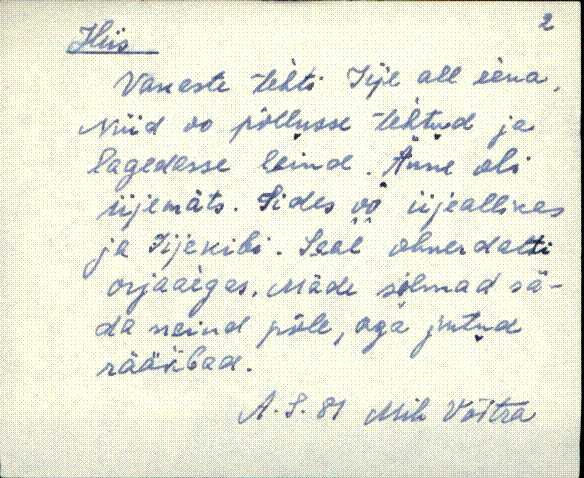 2
Hiis
Vaneste tehti Iije all eena.
Nüid oo põllusse tehtud ja
lagedasse leind. Änne oli
iijemäts. Sides oo iijeallikas
ja Iijekibi. Seal ohverdatti
orjaaegas. Mäde silmad sä-
da neind põle, aga jutud
räägibad.
A. S. 81 Mih Võttra